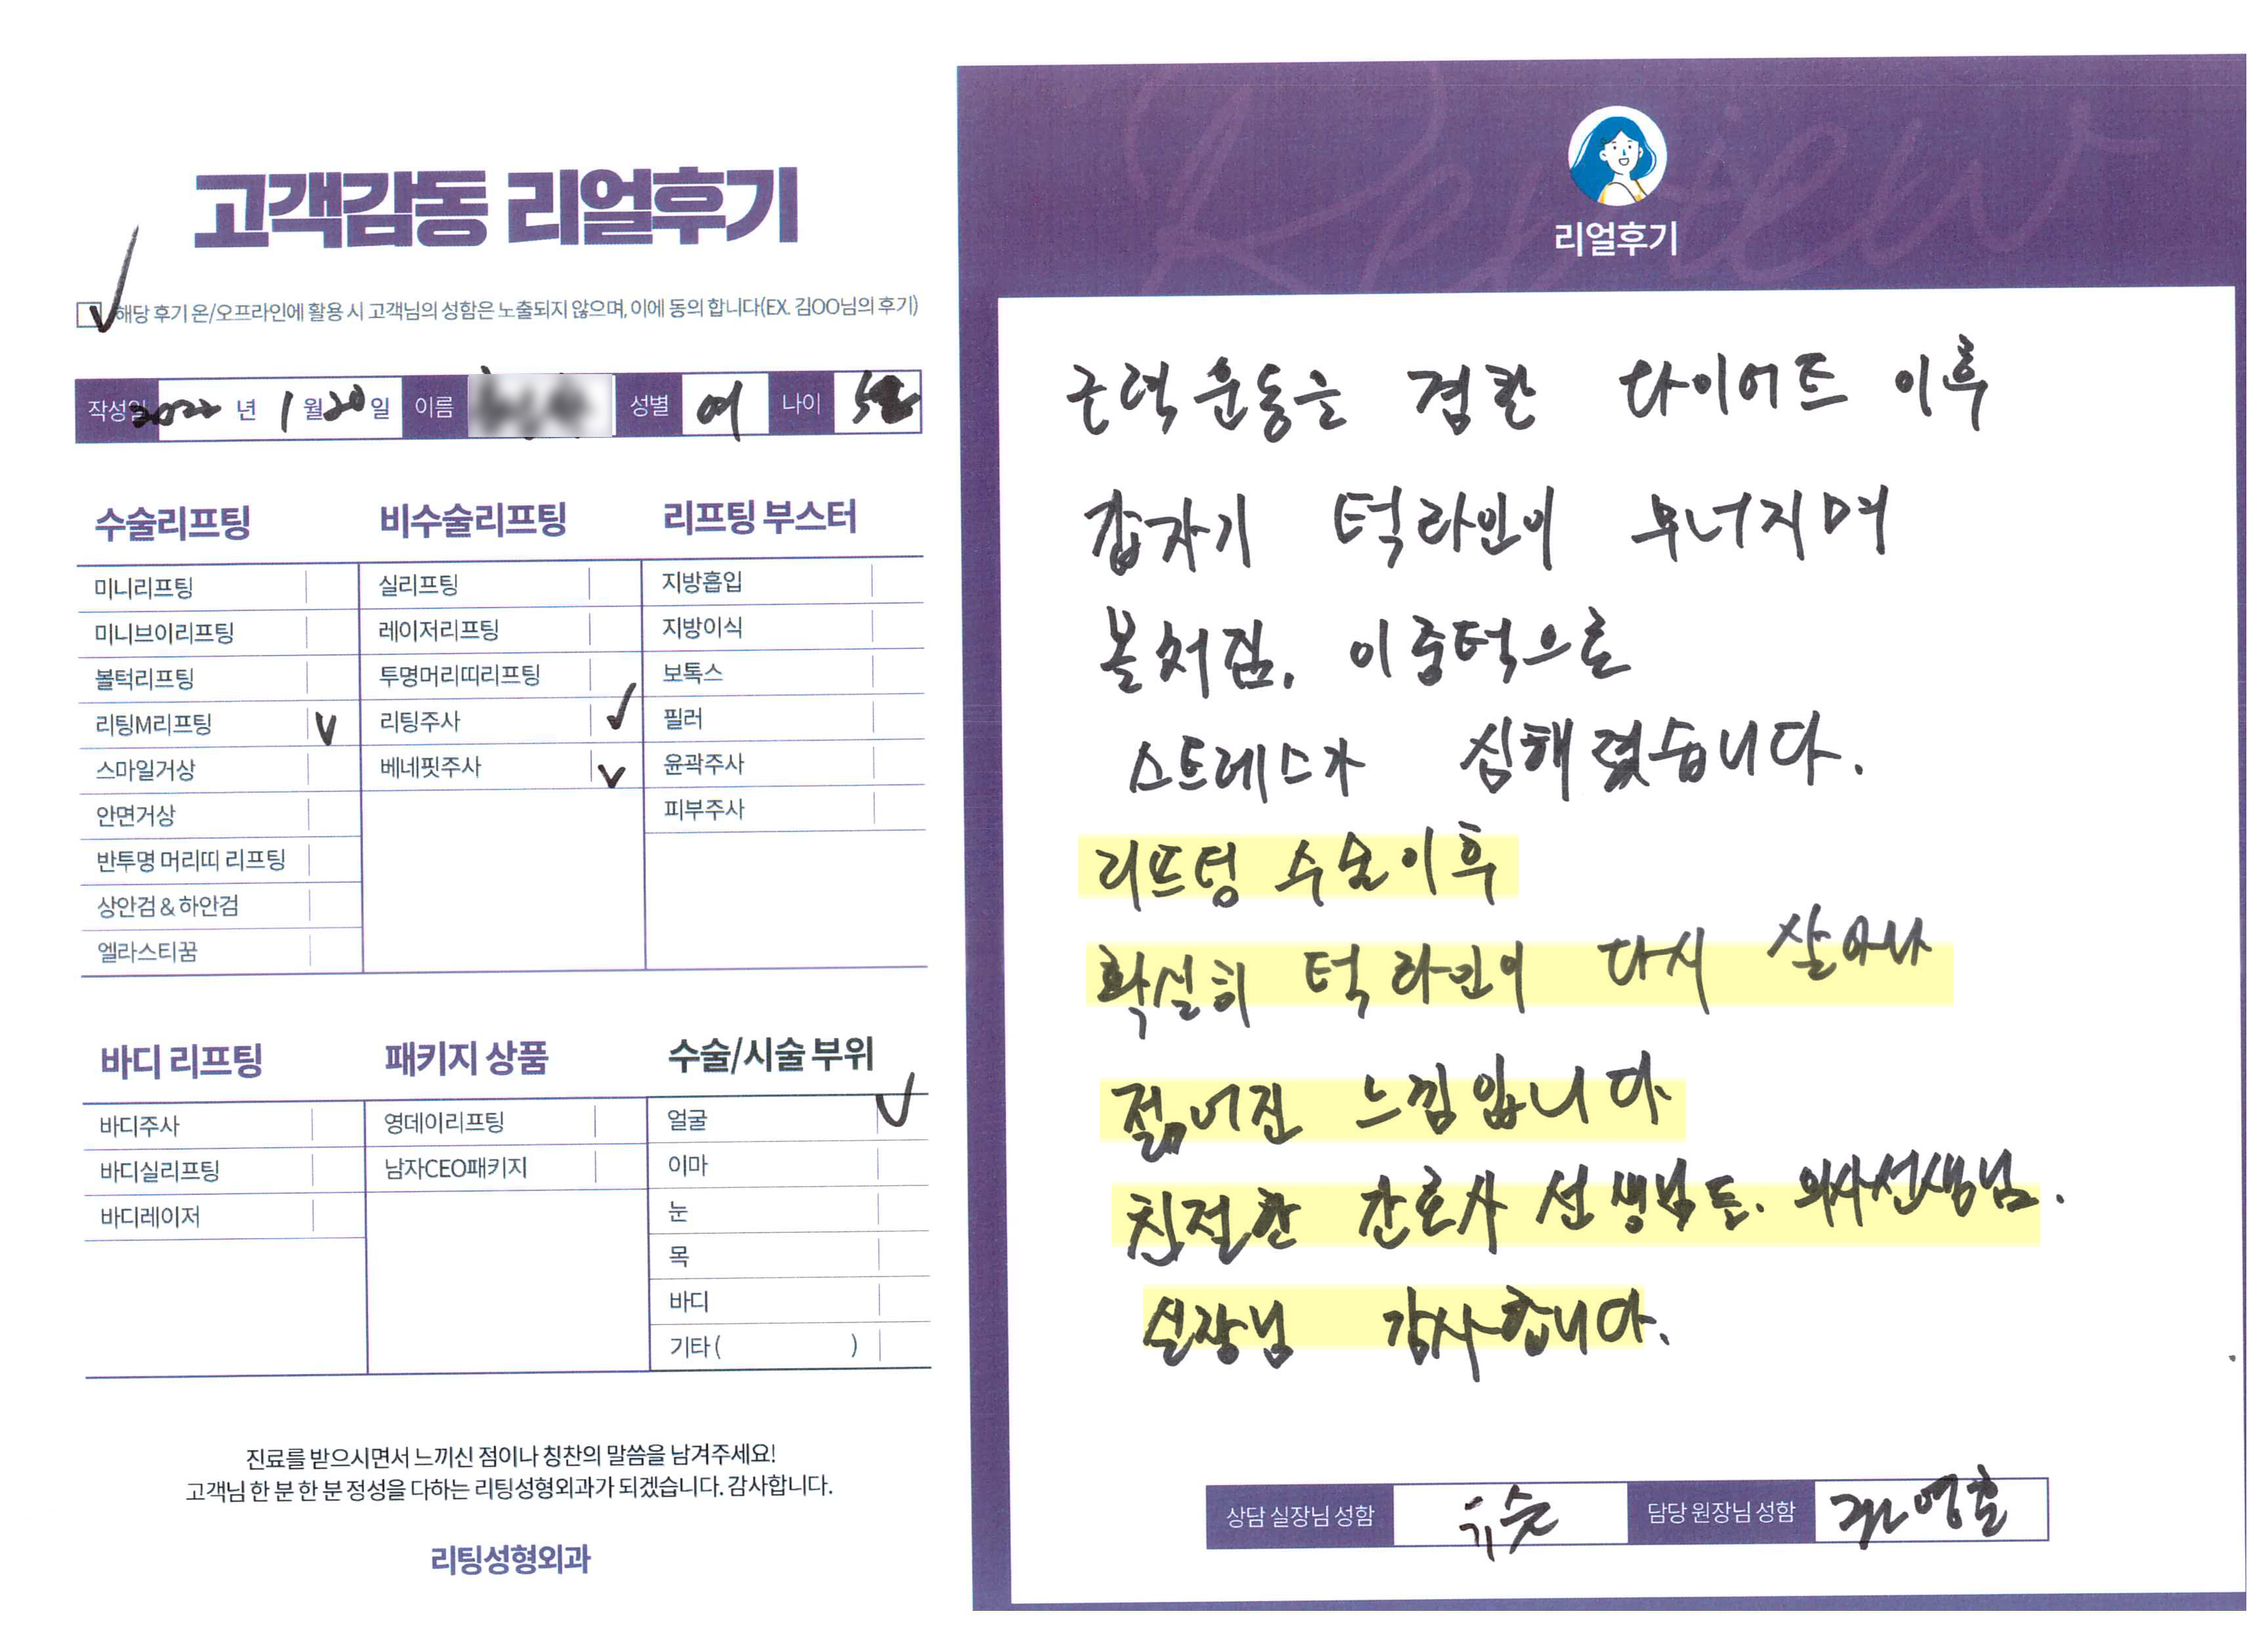 고객감동 리얼후기
해당 후기 온/오프라인에 활용 시 고객님의 성함은 노출되지 않으며, 이에 동의 합니다(EX. 김OO님의 후기)
작성일 2022 년 1 월 20 일 이름 성별 여 나이
수술리프팅
미니리프팅
미니브이리프팅
볼턱리프팅
리팅M리프팅 V
스마일거상
안면거상
반투명 머리띠 리프팅
상안검 & 하안검
엘라스티꿈
비수술리프팅
실리프팅
레이저리프팅
투명머리띠리프팅
리팅주사 ✓
베네핏주사 V
리프팅 부스터
지방흡입
지방이식
보톡스
필러
윤곽주사
피부주사
바디 리프팅
바디주사
바디실리프팅
바디레이저
패키지 상품
영데이리프팅
남자CEO패키지
수술/시술 부위
얼굴 ✓
이마
눈
목
바디
기타 ( )
진료를 받으시면서 느끼신 점이나 칭찬의 말씀을 남겨주세요!
고객님 한 분 한 분 정성을 다하는 리팅성형외과가 되겠습니다. 감사합니다.
리팅성형외과
Review
리얼후기
근력운동을 겸한 다이어트 이후
갑자기 턱라인이 무너지며
볼처짐, 이중턱으로
스트레스가 심해졌습니다.
리프팅 수술이후
확실히 턱라인이 다시 살아나
젊어진 느낌입니다
친절한 간호사 선생님들. 의사선생님.
실장님 감사합니다.
상담 실장님 성함 담당 원장님 성함